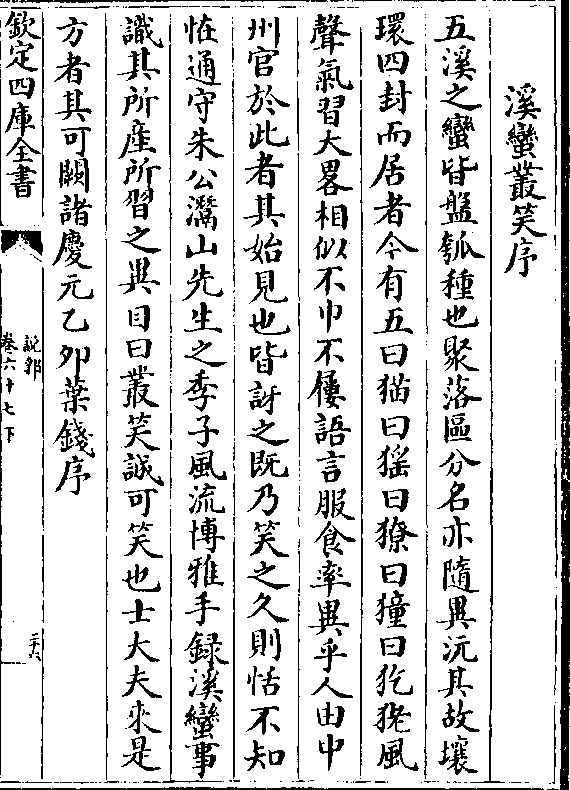 溪蠻叢笑序
五溪之蠻皆盤瓠種也聚落區分名亦隨異沅其故壤
環四封而居者今有五曰猫曰猺曰獠曰獞曰犵狫風
聲氣習大畧相似不巾不屨語言服食率異乎人由中
州官於此者其始見也皆訝之既乃笑之久則恬不知
怪通守朱公灊山先生之季子風流博雅手録溪蠻事
識其所産所習之異目曰叢笑誠可笑也士大夫來是
方者其可闕諸慶元乙夘葉錢序
欽定四庫全書
說郛
卷六十七下
三十六